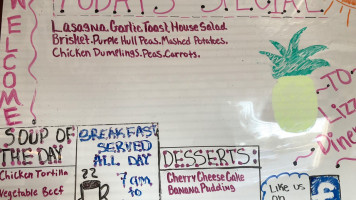 TODAYS SPECIAL
WELCOME
Lasagna, Garlic Toast, House Salad
Brisket, Purple Hull Peas, Mashed Potatoes,
Chicken Dumplings, Peas, Carrots.
To
Lizz
Dine
SOUP OF
THE DAY
Chicken Tortilla
Vegetable Beef
BREAKFAST
SERVED
ALL DAY
7am
to
DESSERTS:
Cherry Cheese Cake
Banana Pudding
Like us
on